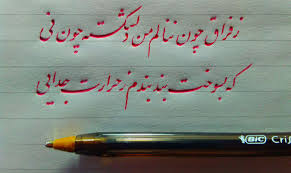 ز فراق چون ننالم من دلشکسته چون نی
که بسوخت بند بندم ز حرارت جدایی
BIC Cris